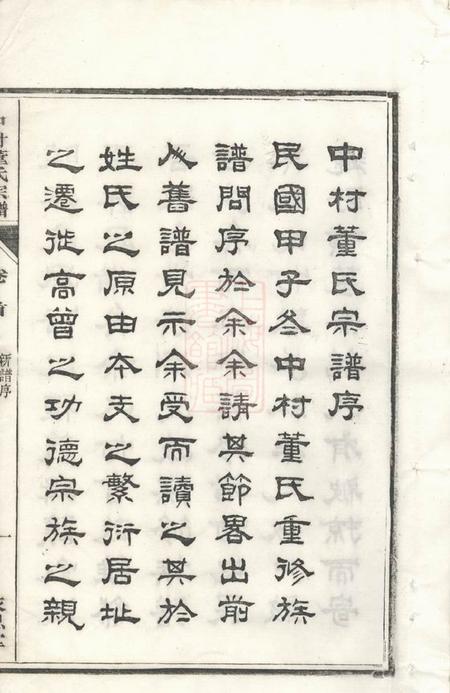 中村董氏宗譜序
民國甲子冬中村董氏重修族
譜問序於余余請其節畧出前
人舊譜見示余受而讀之其於
姓氏之原由本支之繁衍居址
之遷徙高曾之功德宗族之親
中村董氏宗譜
卷首
新譜序
一